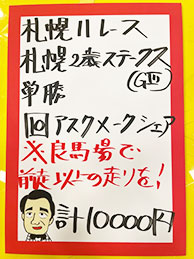 札幌11レース
札幌2歳ステークス
(GⅢ)
単勝
10 アスクメークシェア
※良馬場で
前走以上の走りを!
計10000円